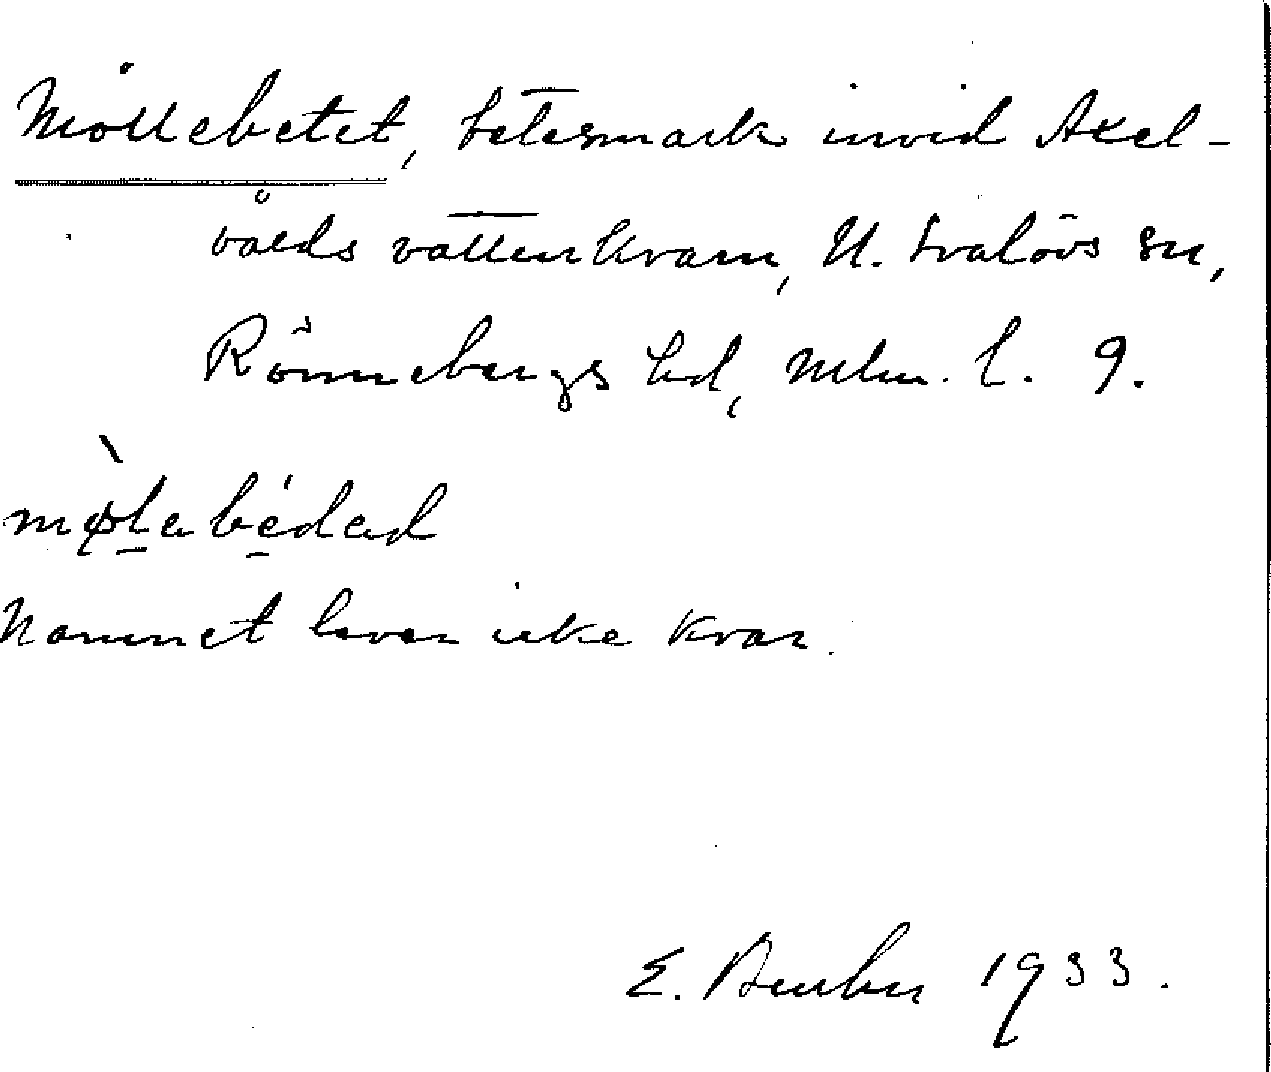 Möllebetet, betesmark invid Axel-
volds vattenkvarn, N. Svalövs sn,
Rönnebergs hd, Mlm. l. 9.
møla bedad
Namnet lever icke kvar.
E. 1933.